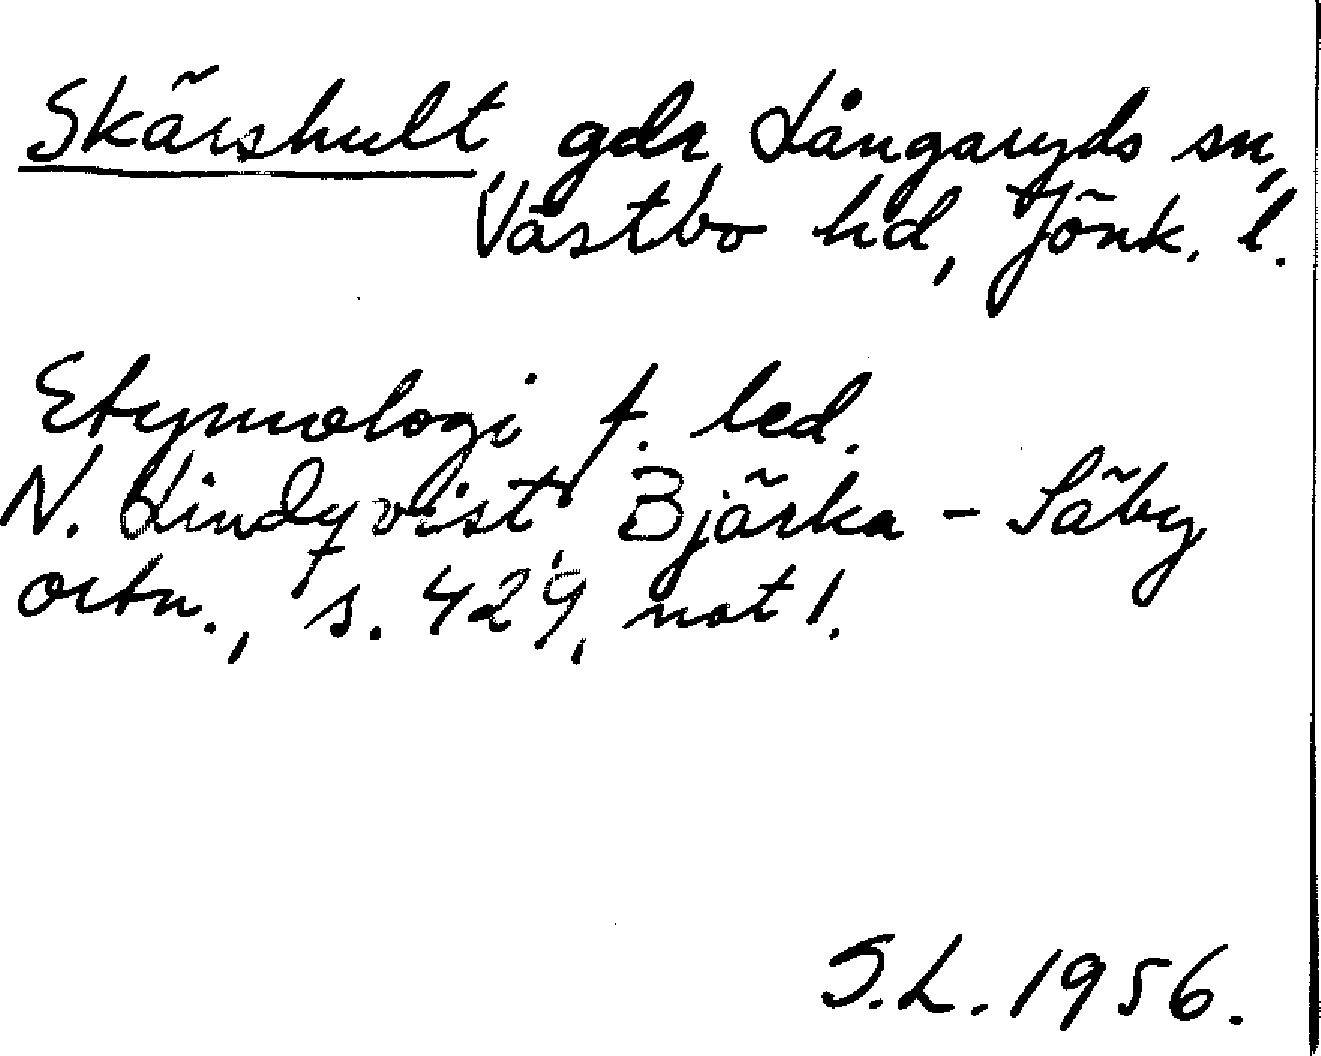 Skärshult, gdr, Långaryds sn,
Västbo hd, Jönk. l.
Etymologi f. led.
N. Lindqvist, Bjärka-Säby
ortn., s. 429, not 1.
S.L. 1956.